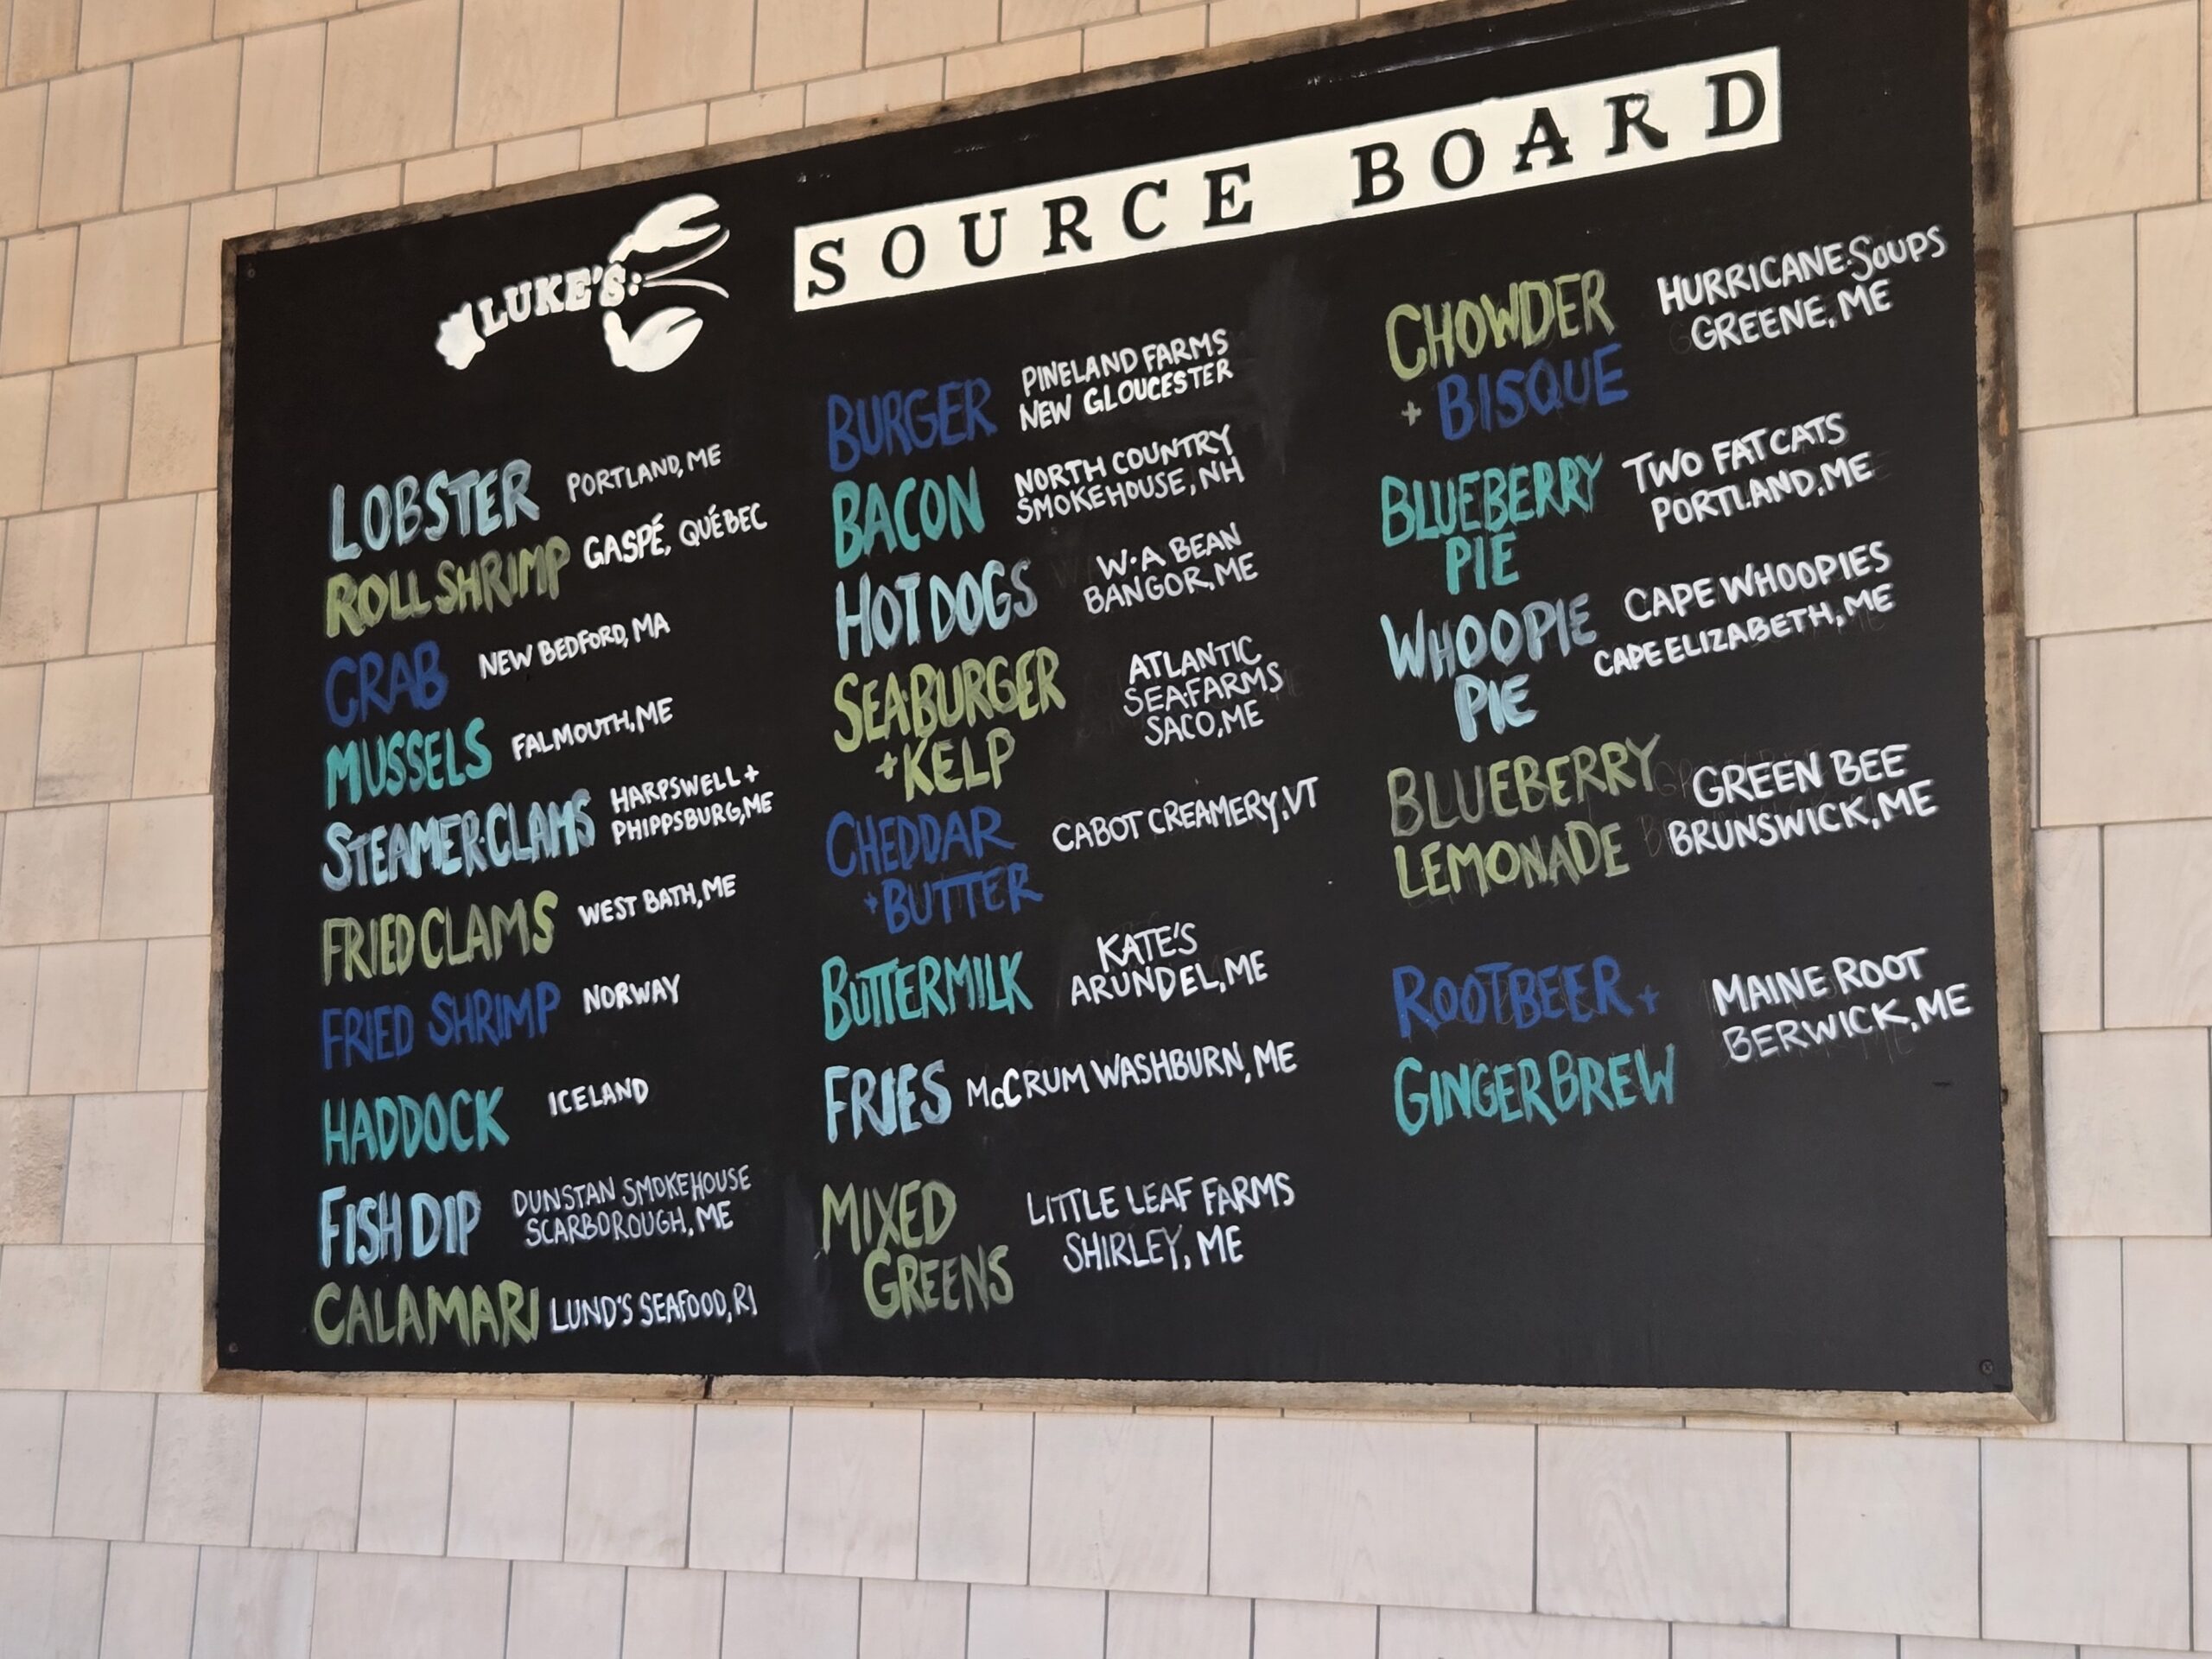 LUKE'S:
SOURCE BOARD
LOBSTER PORTLAND, ME
ROLL SHRIMP GASPÉ, QUÉBEC
CRAB NEW BEDFORD, MA
MUSSELS FALMOUTH, ME
STEAMER·CLAMS HARPSWELL +
PHIPPSBURG, ME
FRIED CLAMS WEST BATH, ME
FRIED SHRIMP NORWAY
HADDOCK ICELAND
FISH DIP DUNSTAN SMOKEHOUSE
SCARBOROUGH, ME
CALAMARI LUND'S SEAFOOD, RI
BURGER PINELAND FARMS
NEW GLOUCESTER
BACON NORTH COUNTRY
SMOKEHOUSE, NH
HOT DOGS W·A BEAN
BANGOR, ME
SEA·BURGER ATLANTIC
+ KELP SEA·FARMS
SACO, ME
CHEDDAR CABOT CREAMERY, VT
+ BUTTER
BUTTERMILK KATE'S
ARUNDEL, ME
FRIES McCRUM WASHBURN, ME
MIXED LITTLE LEAF FARMS
GREENS SHIRLEY, ME
CHOWDER HURRICANE·SOUPS
+ BISQUE GREENE, ME
BLUEBERRY TWO FAT CATS
PIE PORTLAND, ME
WHOOPIE CAPE WHOOPIES
PIE CAPE ELIZABETH, ME
BLUEBERRY GREEN BEE
LEMONADE BRUNSWICK, ME
ROOTBEER + MAINE ROOT
GINGER BREW BERWICK, ME